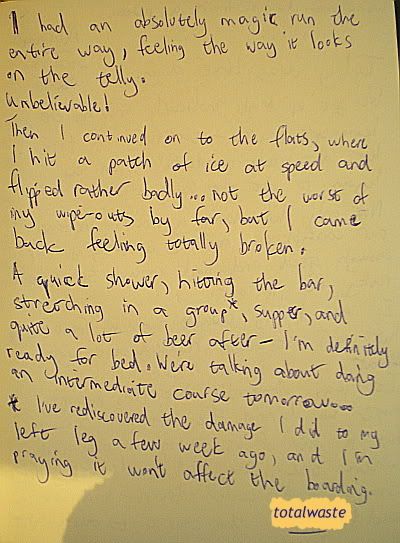 I had an absolutely magic run the
entire way, feeling the way it looks
on the telly.
Unbelievable!
Then I continued on to the flats, where
I hit a patch of ice at speed and
flipped rather badly... not the worst of
my wipe-outs by far, but I came
back feeling totally broken.
A quick shower, hitting the bar,
stretching in a group*, supper, and
quite a lot of beer after - I'm definitely
ready for bed. We're talking about doing
an intermediate coarse tomorrow...
* I've rediscovered the damage I did to my
left leg a few week ago, and I'm
praying it won't affect the boarding.
totalwaste